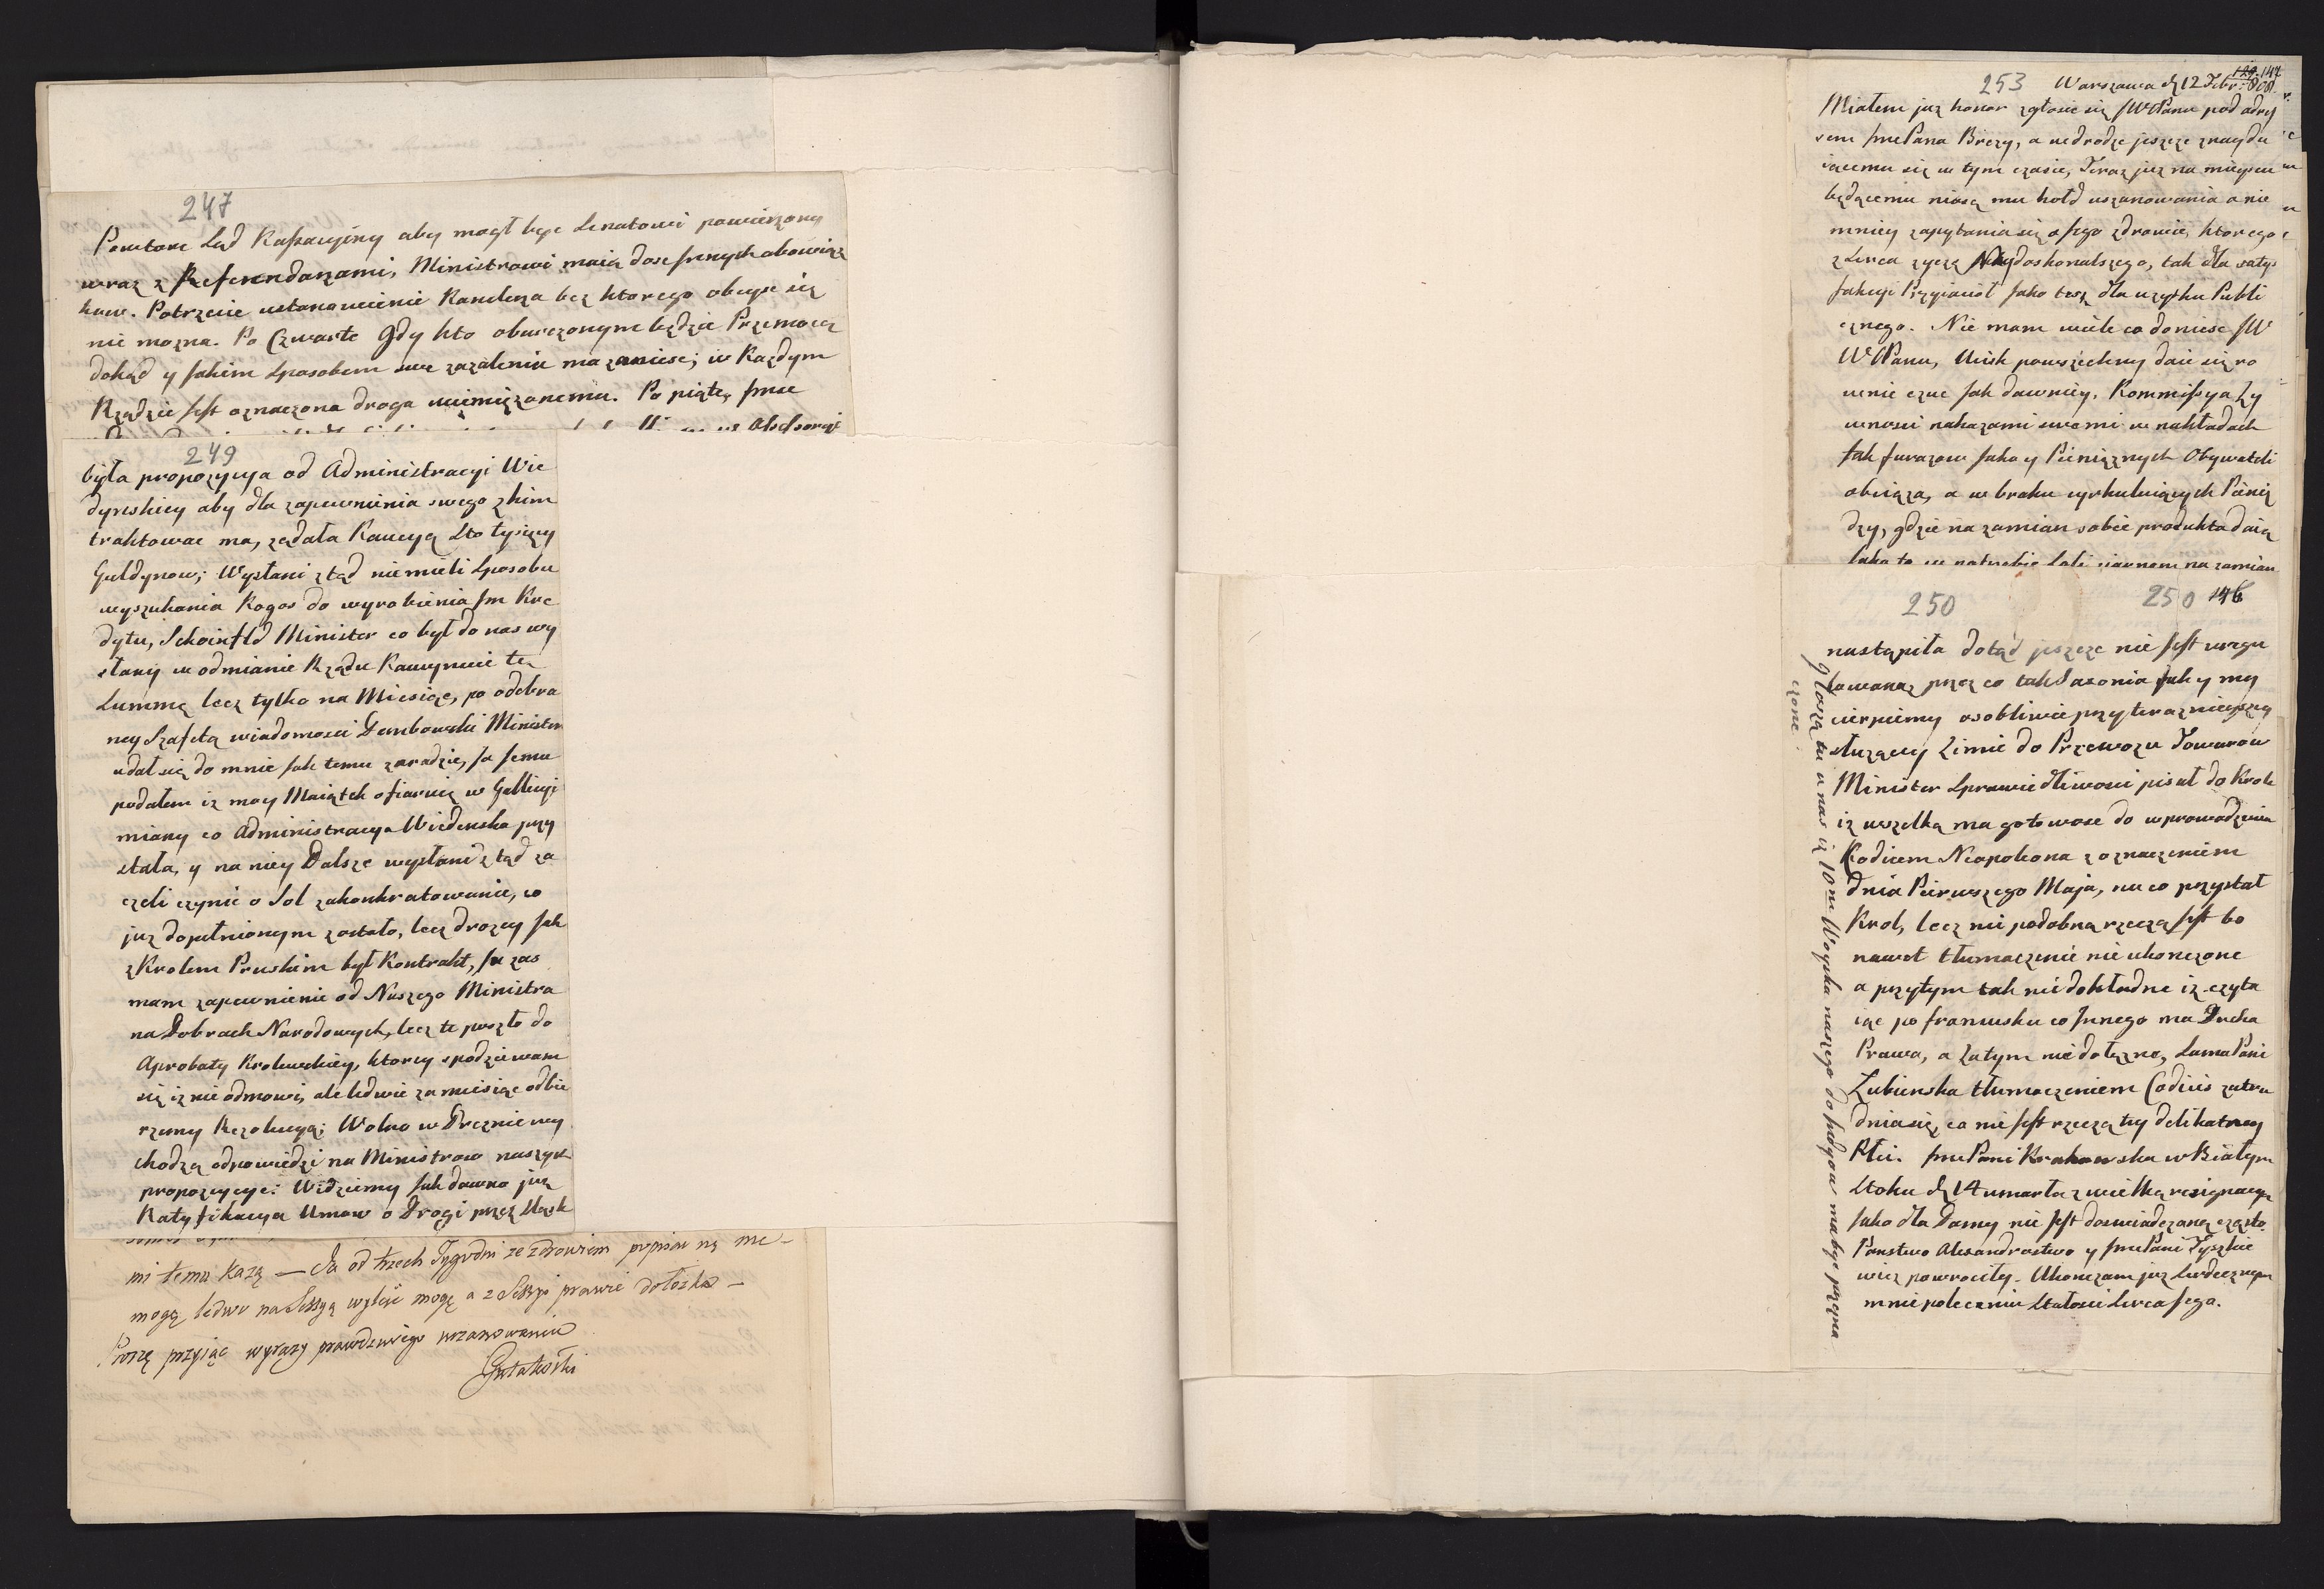 247
Powtore Sąd Kassacyjny aby mogł byc Senatowi powierzony
wraz z Referendarzami, Ministrowi maią dosc innych obowiąz
kow. Potrzecie ustanowienie Kanclerza bez ktorego obeysc się
nie mozna. Po Czwarte Gdy kto obarczonym będzie Przemocą
dokąd y jakim sposobem swe zazalenie ma zaniesc; w Kazdym
Rządzie jest oznaczona droga uciemięzonemu. Po piąte, jmc
249
była propozycya od Administracyi Wie
dynskiey aby dla zapewnienia swego z kim
traktowac ma, ządała Kaucyą Sto tysięcy
Guldynow; Wysłani ztąd niemieli sposobu
wyszukania Kogos do wyrobienia im Kre
dytu, Schoinfeld Minister co był do nas wy
słany w odmianie Rządu Kaucynuie tę
Summę lecz tylko na Miesiąc, po odebra
ney Szafetą wiadomosci Dembowski Minister
udał się do mnie jak temu zaradzic, ja jemu
podałem iz moy Maiątek ofiaruię w Gallicyi
miany co Administracya Wiedenska przy
stała, y na niey Dalsze wysłani ztąd za
czeli czynic o Sol zakontratowanie, co
juz dopełnionym zostało, lecz drozey jak
z Krolem Pruskim był Kontrakt, ja zas
mam zapewnienie od Naszego Ministra
na Dobrach Narodowych, lecz te poszło do
Aprobaty Krolewskiey, ktorey spodziewam
się iz nie odmowi, ale ledwie za miesiąc odbie
rzemy Rezolucyą; Wolno w Dreznie wy
chodzą odpowiedzi na Ministrow naszych
propozycye: Widziemy jak dawno juz
Ratyfikacya Umow o Drogi przez Sląsk
mi temu każą — Ja od trzech Tygodni ze zdrowiem popisac się nie
mogą ledwo na Sessyą wyleść mogę a z Sessyi prawie do łożka —
Proszę przyjąc wyrazy prawdziwego uszanowania
Gutakowski
253
Warszawa d. 12 Febr: 808.
129. 147
Miałem juz honor zgłosic się JWWPanu pod adres
sem jmcPana Brezy, a w drodze jeszcze znaydu
iącemu się w tym czasie, Teraz juz na mieyscu
będącemu niosę mu hołd uszanowania a nie
mniey zapytania się o jego zdrowie, ktorego
z serca zyczę Naydoskonalszego, tak dla satys
fakcyi Przyiacioł jako tez dla uzytku Publi
cznego. Nie mam wiele co doniesc JW
WPanu, Ucisk powszechny daie się ro
wnie czuc jak dawniey, Kommissya Zy
wnosci nakazami swemi w nakładach
tak furazow jako y Pienięznych Obywateli
obciąza, a w braku cyrkuluiących Pienię
dzy, gdzie na zamian sobie produkta daią
250
250 146
nastąpiła dotąd jeszcze nie jest uregu
lowaną, przez co tak Saxonia jak y my
cierpiemy osobliwie przy teraznieyszey
słuzącey Zimie do Przewozu Towarow
Minister Sprawiedliwosci pisał do Krola
iz wszelką ma gotowosc do wprowadzenia
Kodicem Neapoleona z oznaczeniem
dnia Pierwszego Maja, na co przystał
Krol, lecz nie podobną rzeczą jest bo
nawet tłumaczenie nie ukonczone
a przytym tak niedokładne iz czyta
iąc po francusku co innego ma Ducha
Prawa, a Zatym niedołęzne, Sama Pani
Łubienska tłumaczeniem Codicis zatru
dnia się, co nie jest rzeczą tey delikatney
Płci. jmcPani Krakowska w Białym
Stoku d. 14 umarła z wielką resignacyą
jako dla Damy nie jest doswiadczaną często
Panstwo Alexandrostwo y jmcPani Tyszkie
wicz powrociły. Ukonczam juz serdecznym
mnie poleceniu Stałosci Serca jego.
Głoszą tu u nas iz 10m Woyska naszego do Indyow ma byc przezna
czone.